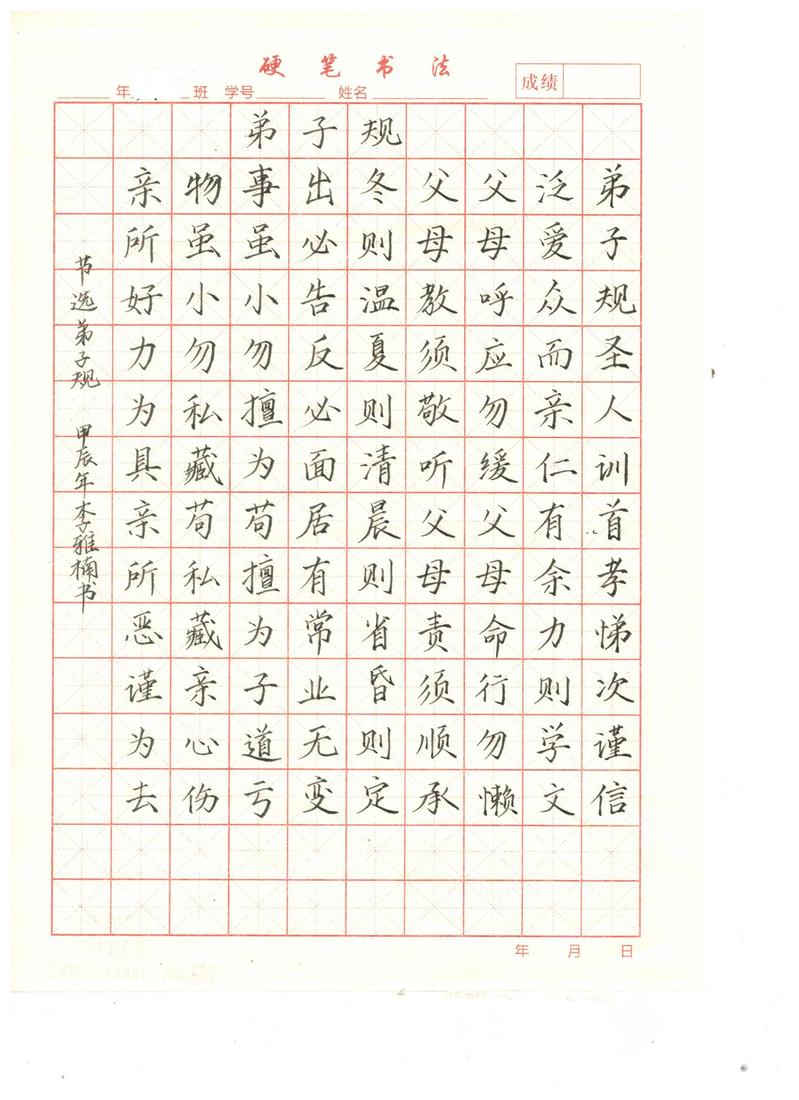 硬笔书法
成绩
年 班 学号 姓名
弟子规
弟子规圣人训首孝悌次谨信
泛爱众而亲仁有余力则学文
父母呼应勿缓父母命行勿懒
父母教须敬听父母责须顺承
冬则温夏则清晨则省昏则定
出必告反必面居有常业无变
事虽小勿擅为苟擅为子道亏
物虽小勿私藏苟私藏亲心伤
亲所好力为具亲所恶谨为去
节选弟子规 甲辰年李雅楠书
年 月 日